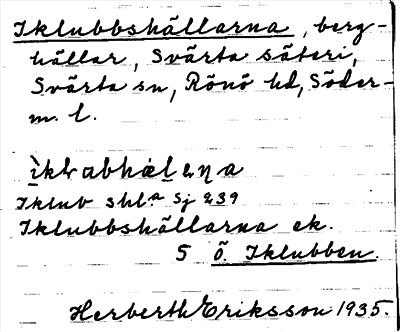 Iklubbshällarna, berg-
hällar, Svärta säteri,
Svärta sn, Rönö hd, Söder-
m. l.
Iklub shlª Sj 239
Iklubbshällarna ek.
5 Ö. Iklubben.
Herberth Eriksson 1935.